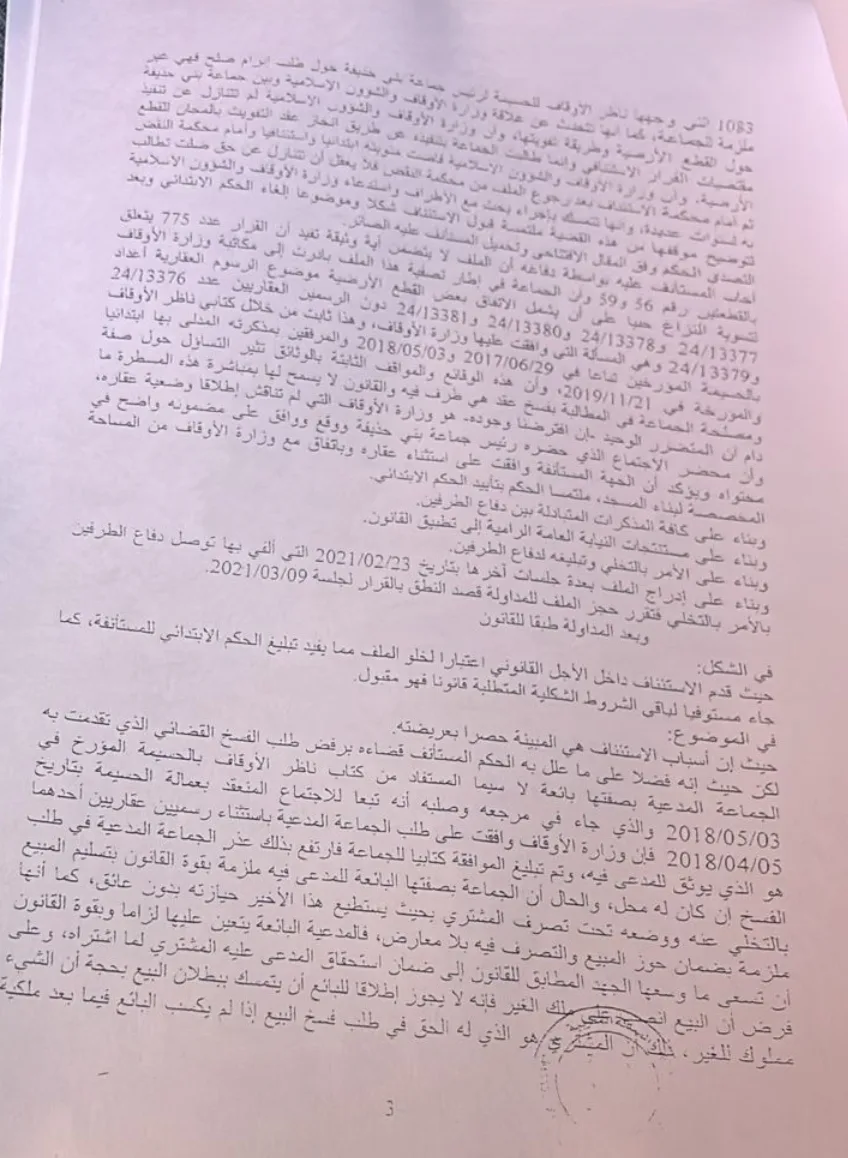 1083 التي وجهها ناظر الأوقاف للحسيمة لرئيس جماعة بني حذيفة حول طلب إبرام صلح فهي غير
ملزمة للجماعة، كما أنها تتحدث عن علاقة وزارة الأوقاف والشؤون الإسلامية وبين جماعة بني حذيفة
حول القطع الأرضية وطريقة تفويتها، وأن وزارة الأوقاف والشؤون الإسلامية لم تتنازل عن تنفيذ
مقتضيات القرار الاستئنافي وإنما طالبت الجماعة بتنفيذه عن طريق انجاز عقد التفويت بالمجان للقطع
الأرضية، وأن وزارة الأوقاف والشؤون الإسلامية ابتدائيا واستئنافيا وأمام محكمة النقض
ثم أمام محكمة الاستئناف بعد رجوع الملف من محكمة النقض فلا يعقل أن تتنازل عن حق ضلت تطالب
به لسنوات عديدة، وأنها تتمسك بإجراء بحث مع الأطراف واستدعاء وزارة الأوقاف والشؤون الإسلامية
لتوضيح موقفها من هذه القضية ملتمسة قبول الاستئناف شكلا وموضوعا إلغاء الحكم الابتدائي وبعد
التصدي الحكم وفق المقال الافتتاحي وتحميل المستأنف عليه الصائر.
أجاب المستأنف عليه بواسطة دفاعه أن الملف لا يتضمن أية وثيقة تفيد أن القرار عدد 775 يتعلق
بالقطعتين رقم 56 و59 وأن الجماعة في إطار تصفية هذا الملف بادرت إلى مكاتبة وزارة الأوقاف
لتسوية النزاع حبيا على أن يشمل الاتفاق بعض القطع الأرضية موضوع الرسوم العقارية أعداد
24/13377 و24/13378 و24/13380 و24/13381 دون الرسمين العقاريين عدد 24/13376
و24/13379 وهي المسألة التي وافقت عليها وزارة الأوقاف، وهذا ثابت من خلال كتابي ناظر الأوقاف
بالحسيمة المؤرخين تباعا في 2017/06/29 و2018/05/03 والمرفقين بمذكرته المدلى بها ابتدائيا
والمؤرخة في 2019/11/21، وأن هذه الوقائع والمواقف الثابتة بالوثائق تثير التساؤل حول صفة
ومصلحة الجماعة في المطالبة بفسخ عقد هي طرف فيه والقانون لا يسمح لها بمباشرة هذه المسطرة ما
دام أن المتضرر الوحيد -إن افترضنا وجوده- هو وزارة الأوقاف التي لم تناقش إطلاقا وضعية عقاره،
وأن محضر الاجتماع الذي حضره رئيس جماعة بني حذيفة ووقع ووافق على مضمونه واضح في
محتواه ويؤكد أن الجهة المستأنفة وافقت على استثناء عقاره وباتفاق مع وزارة الأوقاف من المساحة
المخصصة لبناء المسجد، ملتمسا الحكم بتأييد الحكم الابتدائي.
وبناء على كافة المذكرات المتبادلة بين دفاع الطرفين.
وبناء على مستنتجات النيابة العامة الرامية إلى تطبيق القانون.
وبناء على الأمر بالتخلي وتبليغه لدفاع الطرفين.
وبناء على إدراج الملف بعدة جلسات آخرها بتاريخ 2021/02/23 التي ألفي بها توصل دفاع الطرفين
بالأمر بالتخلي فتقرر حجز الملف للمداولة قصد النطق بالقرار لجلسة 2021/03/09.
وبعد المداولة طبقا للقانون
في الشكل:
حيث قدم الاستئناف داخل الأجل القانوني اعتبارا لخلو الملف مما يفيد تبليغ الحكم الابتدائي للمستأنفة، كما
جاء مستوفيا لباقي الشروط الشكلية المتطلبة قانونا فهو مقبول.
في الموضوع:
حيث إن أسباب الاستئناف هي المبينة حصرا بعريضته.
لكن حيث إنه فضلا على ما علل به الحكم المستأنف قضاءه برفض طلب الفسخ القضائي الذي تقدمت به
الجماعة المدعية بصفتها بائعة لا سيما المستفاد من كتاب ناظر الأوقاف بالحسيمة المؤرخ في
2018/05/03 والذي جاء في مرجعه وصلبه أنه تبعا للاجتماع المنعقد بعمالة الحسيمة بتاريخ
2018/04/05 فإن وزارة الأوقاف وافقت على طلب الجماعة المدعية باستثناء رسمين عقاريين أحدهما
هو الذي يوثق للمدعى فيه، وتم تبليغ الموافقة كتابيا للجماعة فارتفع بذلك عذر الجماعة المدعية في طلب
الفسخ إن كان له محل، والحال أن الجماعة بصفتها البائعة للمدعى فيه ملزمة بقوة القانون بتسليم المبيع
بالتخلي عنه ووضعه تحت تصرف المشتري بحيث يستطيع هذا الأخير حيازته بدون عائق، كما أنها
ملزمة بضمان حوز المبيع والتصرف فيه بلا معارض، فالمدعية البائعة يتعين عليها لزاما وبقوة القانون
أن تسعى ما وسعها الجهد المطابق للقانون إلى ضمان استحقاق المدعى عليه المشتري لما اشتراه، وعلى
فرض أن البيع انصب على ملك الغير فإنه لا يجوز إطلاقا للبائع أن يتمسك ببطلان البيع بحجة أن الشيء
مملوك للغير، ذلك أن المشتري هو الذي له الحق في طلب فسخ البيع إذا لم يكسب البائع فيما بعد ملكية
3